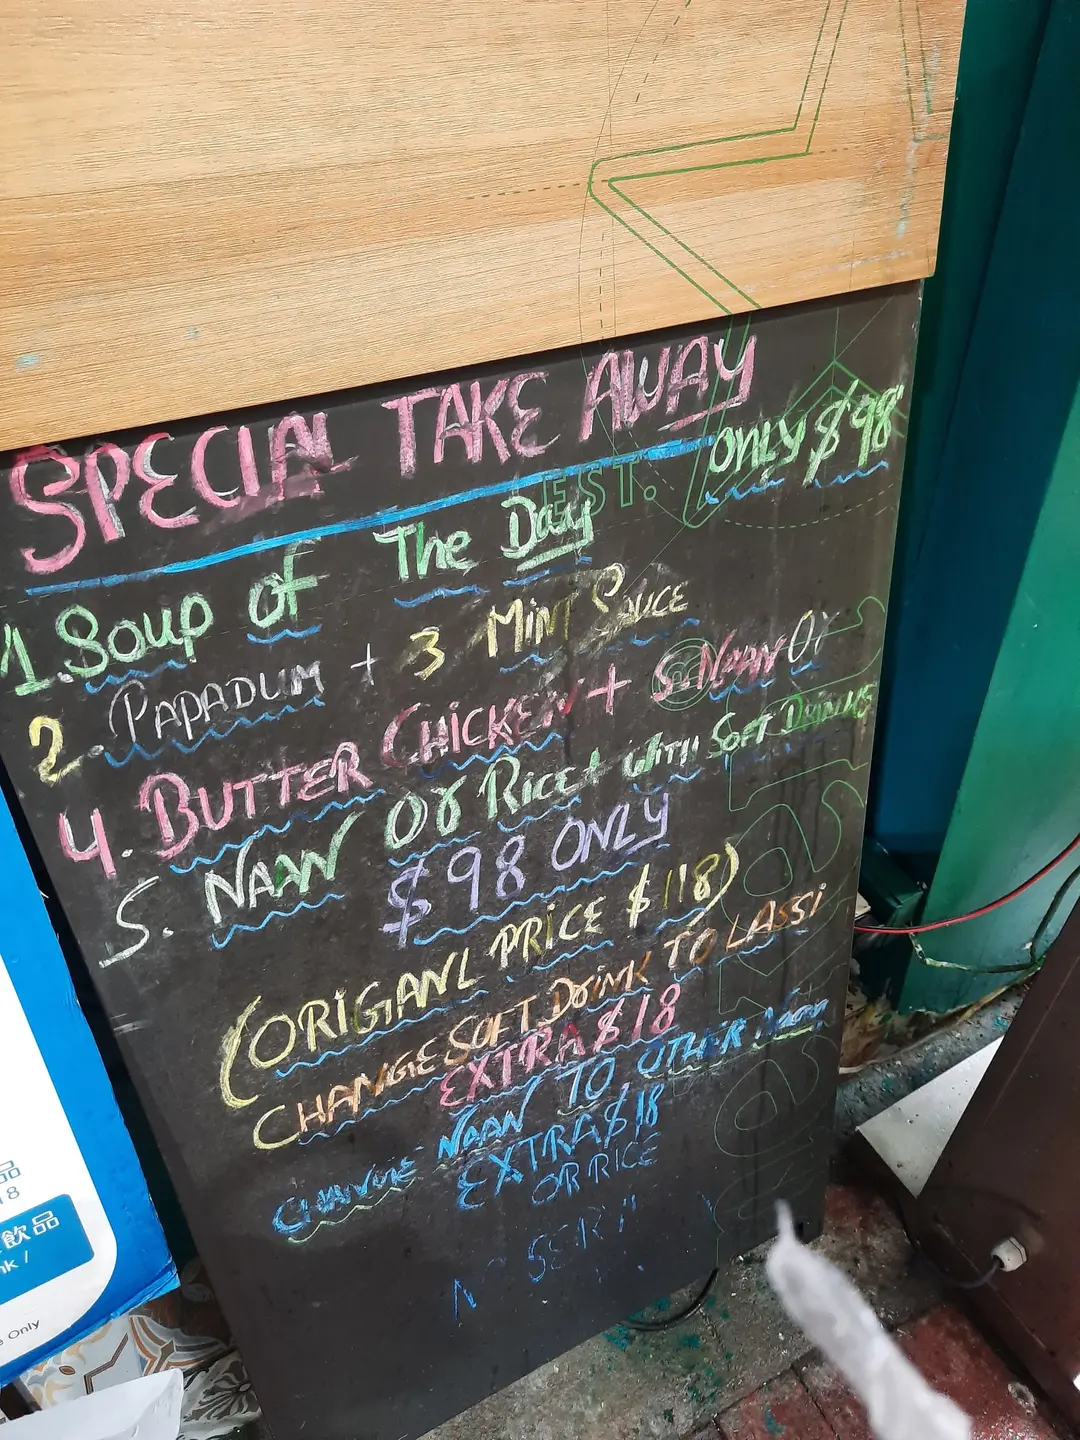 SPECIAL TAKE AWAY
ONLY $98
EST.
1. Soup of The Day
2. PAPADUM + 3 MINT SAUCE
4. BUTTER CHICKEN + 5. NAAN Or
5. NAAN Or Rice + with SOFT DRINKS
$98 ONLY
(ORIGANL PRICE $118)
CHANGE SOFT DRINK TO LASSI
EXTRA $18
NAAN TO OTHER Naan
EXTRA $18
OR RICE
品
18
飲品
nk /
Only